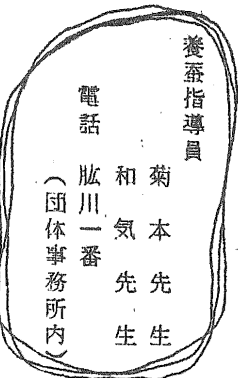 養蚕指導員
菊本先生
和気先生
電話 肱川一番
（団体事務所内）